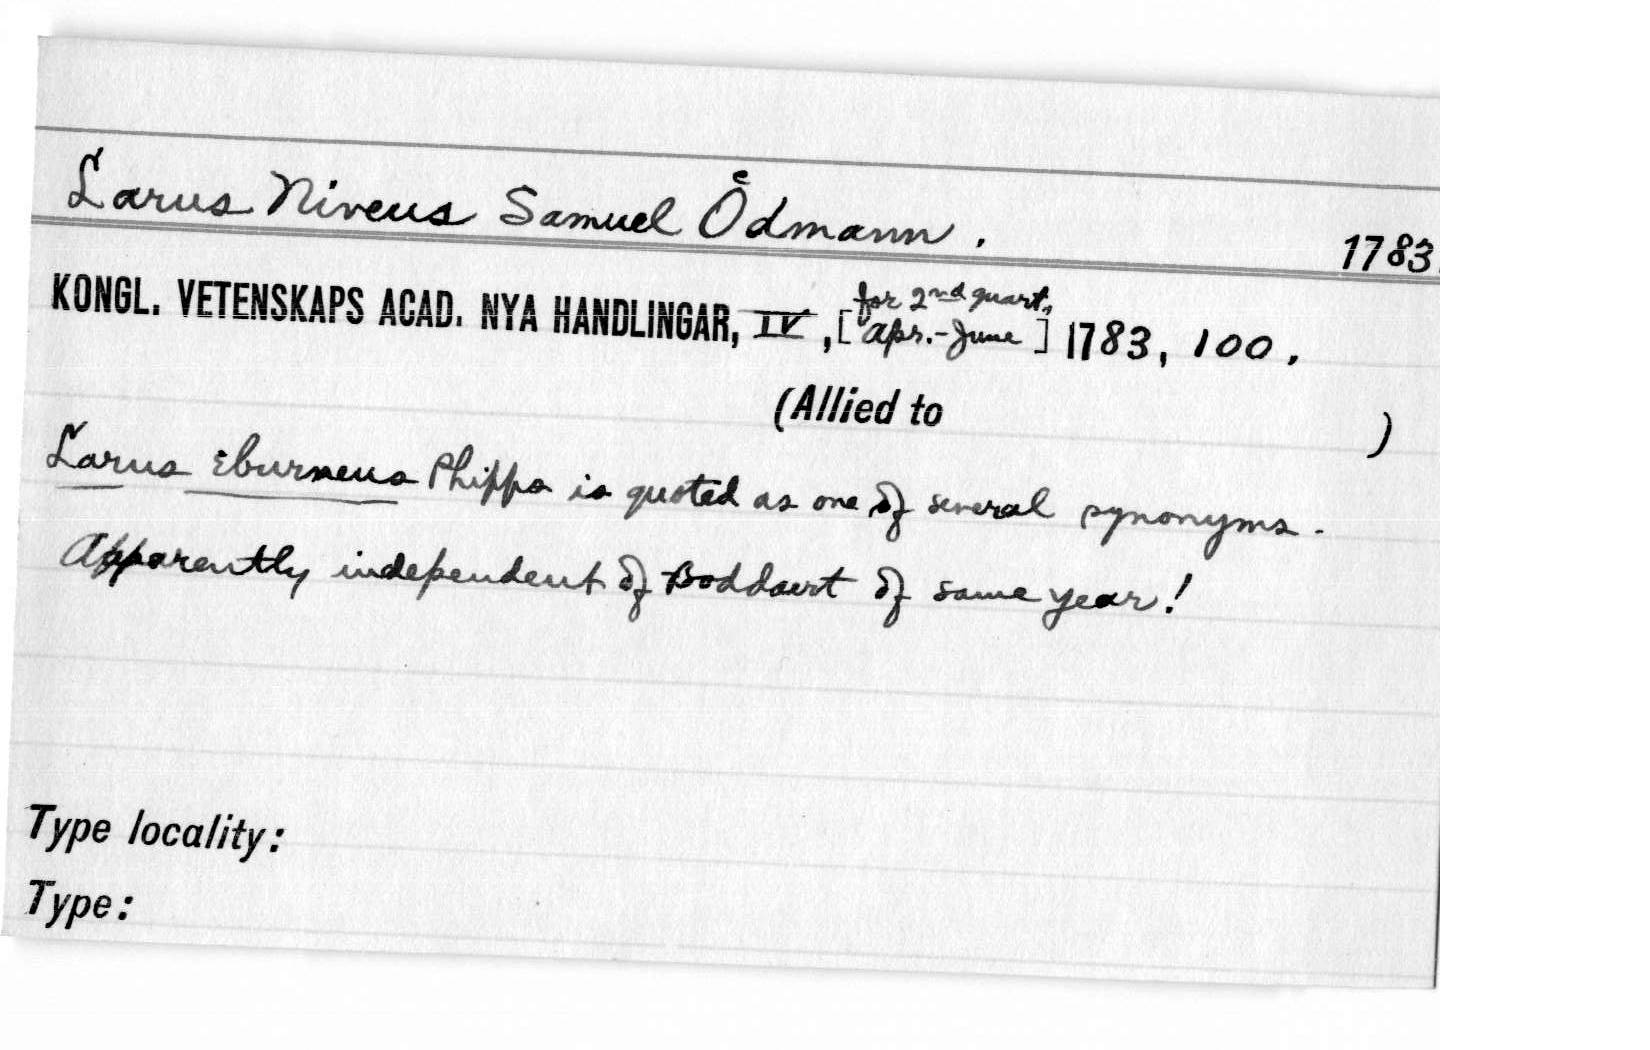 Larus Niveus Samuel Oͤdmann. 1783.
KONGL. VETENSKAPS ACAD. NYA HANDLINGAR, IV, [for 2nd quart., Apr.-June] 1783, 100.
(Allied to )
Larus eburneus Phipps is quoted as one of several synonyms.
Apparently independent of Boddaert of same year!
Type locality:
Type: